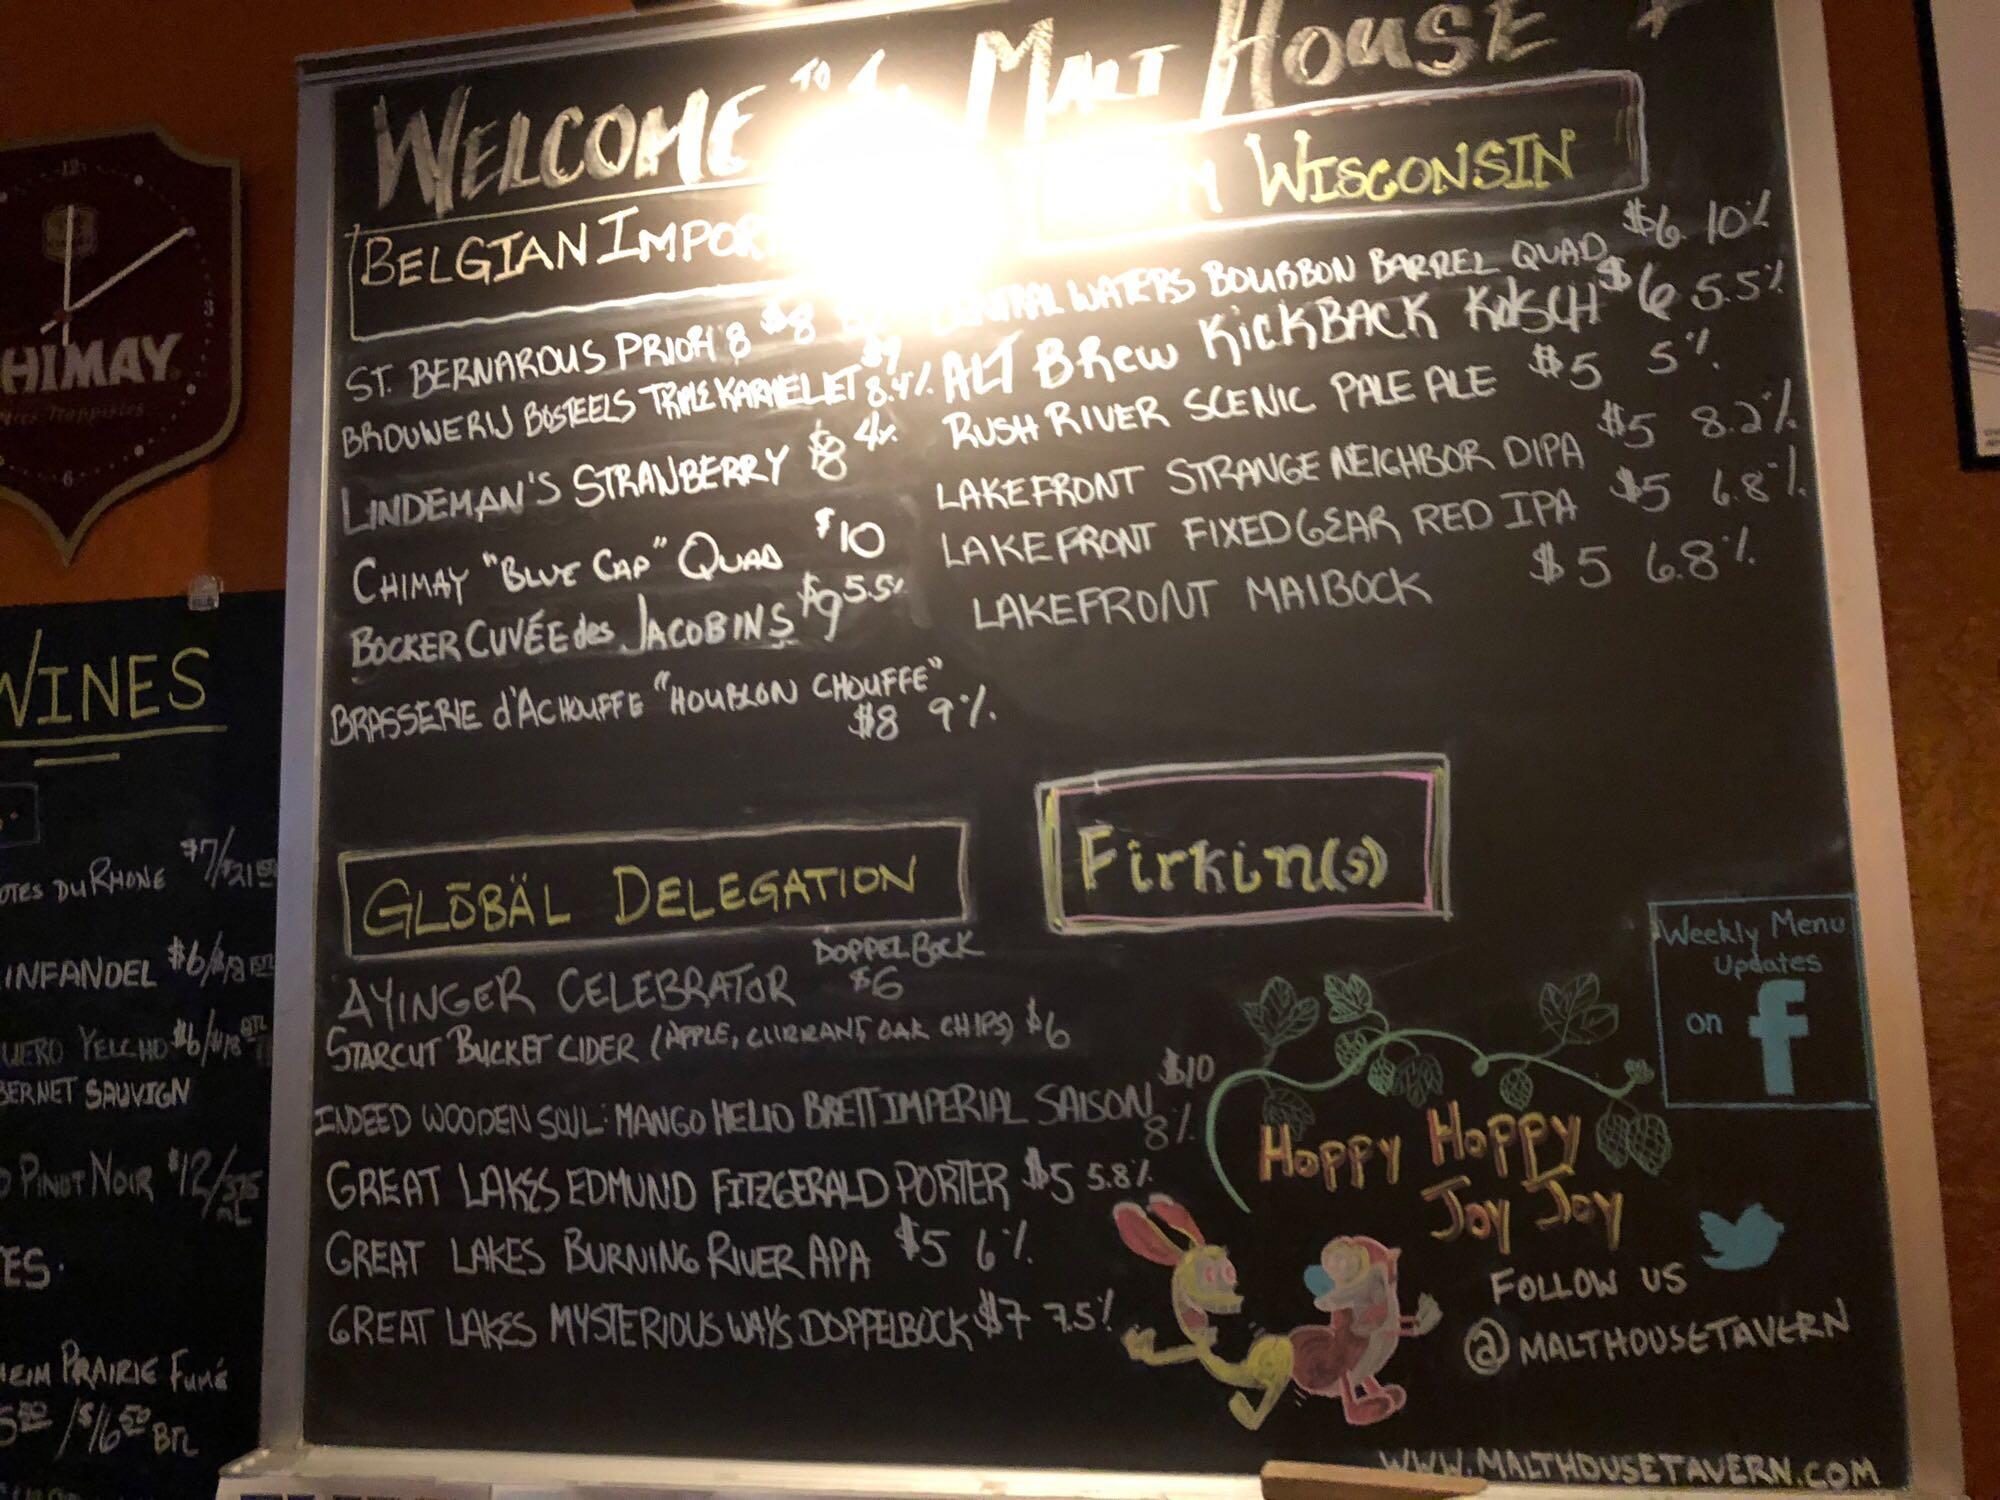 WELCOME TO MALT HOUSE
BELGIAN IMPOR
ST. BERNARDUS PRIOR 8 $8
BROUWERIJ BOSTEELS TRIPLE KARMELIET $9 8.4%
LINDEMAN'S STRAWBERRY $8 4%
CHIMAY "BLUE CAP" QUAD $10
BOCKER CUVÉE des JACOBINS $9 5.5%
BRASSERIE d'ACHOUFFE "HOUBLON CHOUFFE"
$8 9%
WISCONSIN
CENTRAL WATERS BOURBON BARREL QUAD $6 10%
ALT BREW KICKBACK KOLSCH $6 5.5%
RUSH RIVER SCENIC PALE ALE $5 5%
LAKEFRONT STRANGE NEIGHBOR DIPA $5 8.2%
LAKEFRONT FIXED GEAR RED IPA $5 6.8%
LAKEFRONT MAIBOCK $5 6.8%
GLŌBÄL DELEGATION
AYINGER CELEBRATOR DOPPELBOCK $6
STARCUT BUCKET CIDER (APPLE, CURRANT, OAK CHIPS) $6
INDEED WOODEN SOUL: MANGO HELIO BRETT IMPERIAL SAISON $10
8%
GREAT LAKES EDMUND FITZGERALD PORTER $5 5.8%
GREAT LAKES BURNING RIVER APA $5 6%
GREAT LAKES MYSTERIOUS WAYS DOPPELBOCK $7 7.5%
Firkin(s)
Weekly Menu
Updates
on f
HOPPY HOPPY
JOY JOY
FOLLOW US
@MALTHOUSETAVERN
WWW.MALTHOUSETAVERN.COM
12
3
6
HIMAY
WINES
OTES DU RHONE $7/$21
INFANDEL $6/$18 BTL
UERO YELCHO $6/$18 BTL
BERNET SAUVIGN
PINOT NOIR $12/375
ML
ES.
HEIM PRAIRIE FUMÉ
5.50/$16.50 BTL